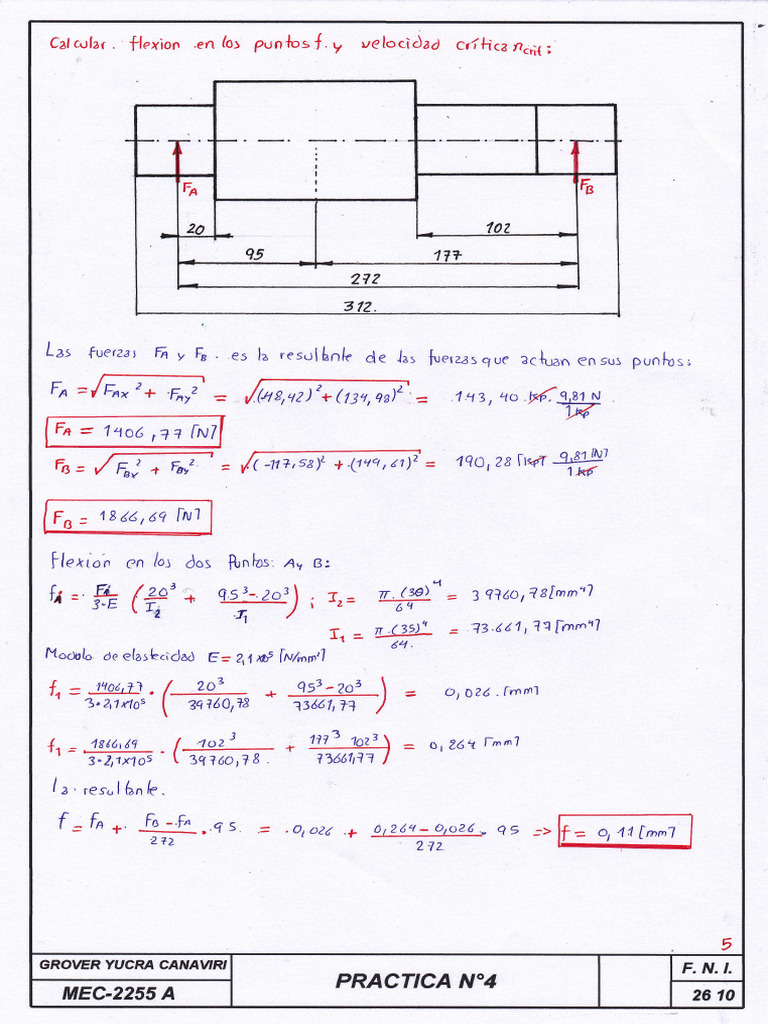 Calcular. flexion en los puntos f. y velocidad crítica ncrit:
FA
FB
20
102
95
177
272
312.
Las fuerzas FA y FB. es la resultante de las fuerzas que actuan en sus puntos:
FA = √(FAx² + FAy²) = √((-48,42)² + (134,98)²) = 143,40 kp. 9,81 N / 1 kp
FA = 1406,77 [N]
FB = √(FBx² + FBy²) = √((-117,58)² + (149,61)²) = 190,28 [kp] 9,81 [N] / 1 kp
FB = 1866,69 [N]
flexión en los dos Puntos: A y B:
fA = FA / 3·E (20³ / I2 + 95³ - 20³ / I1) ; I2 = π·(30)⁴ / 64 = 39760,78 [mm⁴]
I1 = π·(35)⁴ / 64. = 73.661,77 [mm⁴]
Modolo de elastecidad E = 2,1x10⁵ [N/mm²]
f1 = 1406,77 / 3·2,1x10⁵ · (20³ / 39760,78 + 95³ - 20³ / 73661,77) = 0,026. [mm]
f1 = 1866,69 / 3·2,1x10⁵ · (102³ / 39760,78. + 177³ 102³ / 73661,77) = 0,264 [mm]
la resultante.
f = fA + fB - fA / 272 · 95. = 0,026 + 0,264 - 0,026 / 272 · 95 => f = 0,11 [mm]
5
GROVER YUCRA CANAVIRI
MEC-2255 A
PRACTICA N°4
F. N. I.
26 10